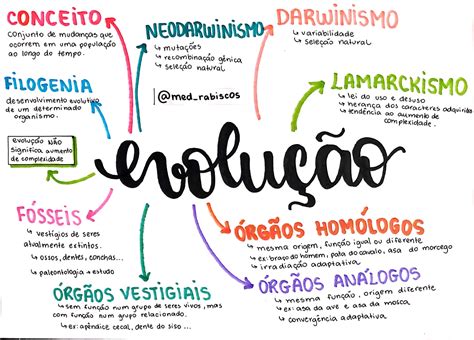 CONCEITO
conjunto de mudanças que
ocorrem em uma população
ao longo do tempo.
NEODARWINISMO
↳ mutações
↳ recombinação gênica
↳ seleção natural
DARWINISMO
↳ variabilidade
↳ seleção natural
@med_rabiscos
FILOGENIA
desenvolvimento evolutivo
de um determinado
organismo.
LAMARCKISMO
↳ lei do uso e desuso
↳ herança dos caracteres adquiridos
↳ tendência ao aumento de
complexidade.
evolução NÃO
significa aumento
de complexidade
evolução
FÓSSEIS
↳ vestígios de seres
atualmente extintos.
↳ ossos, dentes, conchas...
↳ paleontologia → estudo
ÓRGÃOS HOMÓLOGOS
↳ mesma origem, função igual ou diferente
↳ ex: braço do homem, pata do cavalo, asa do morcego
↳ irradiação adaptativa
ÓRGÃOS VESTIGIAIS
↳ sem função num grupo de seres vivos, mas
com função num grupo relacionado.
↳ ex: apêndice cecal, dente do siso ...
ÓRGÃOS ANÁLOGOS
↳ mesma função, origem diferente
↳ ex: asa da ave e asa da mosca
↳ convergência adaptativa